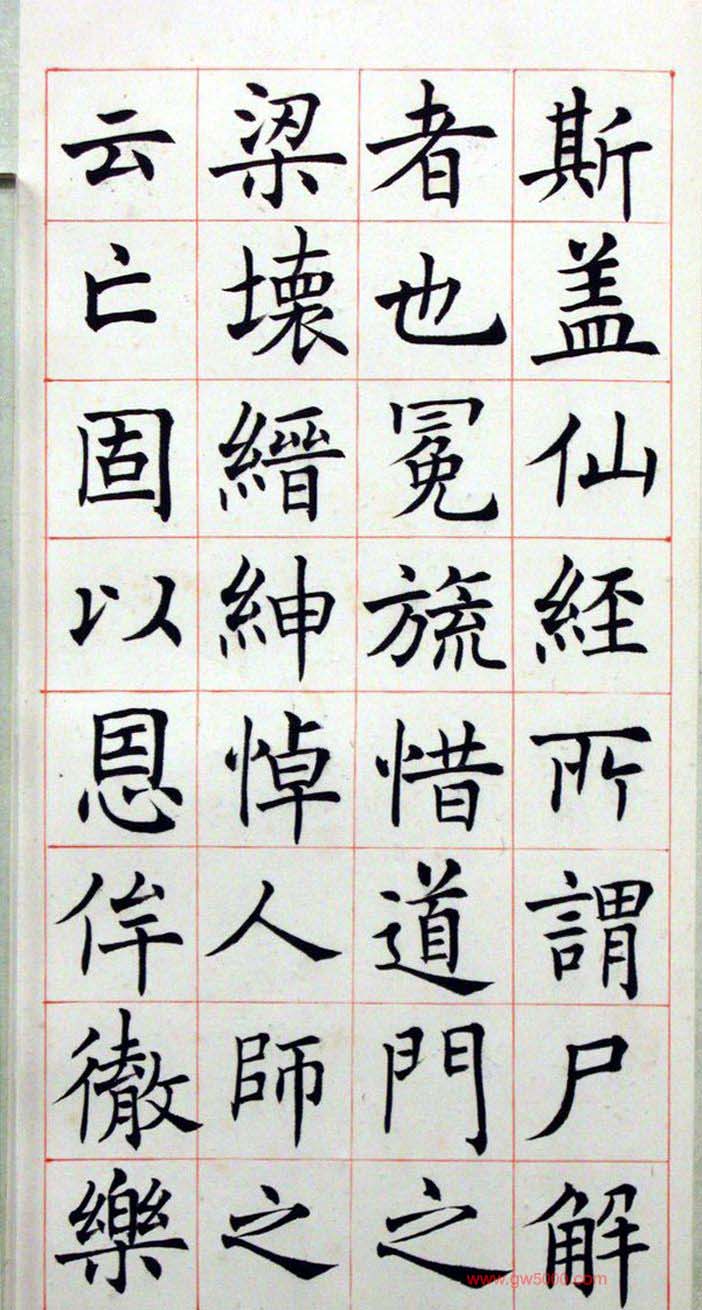 斯盖仙經所謂尸解
者也冕旒惜道門之
梁壞縉紳悼人師之
云亡固以恩侔徹樂
www.gw5000.com